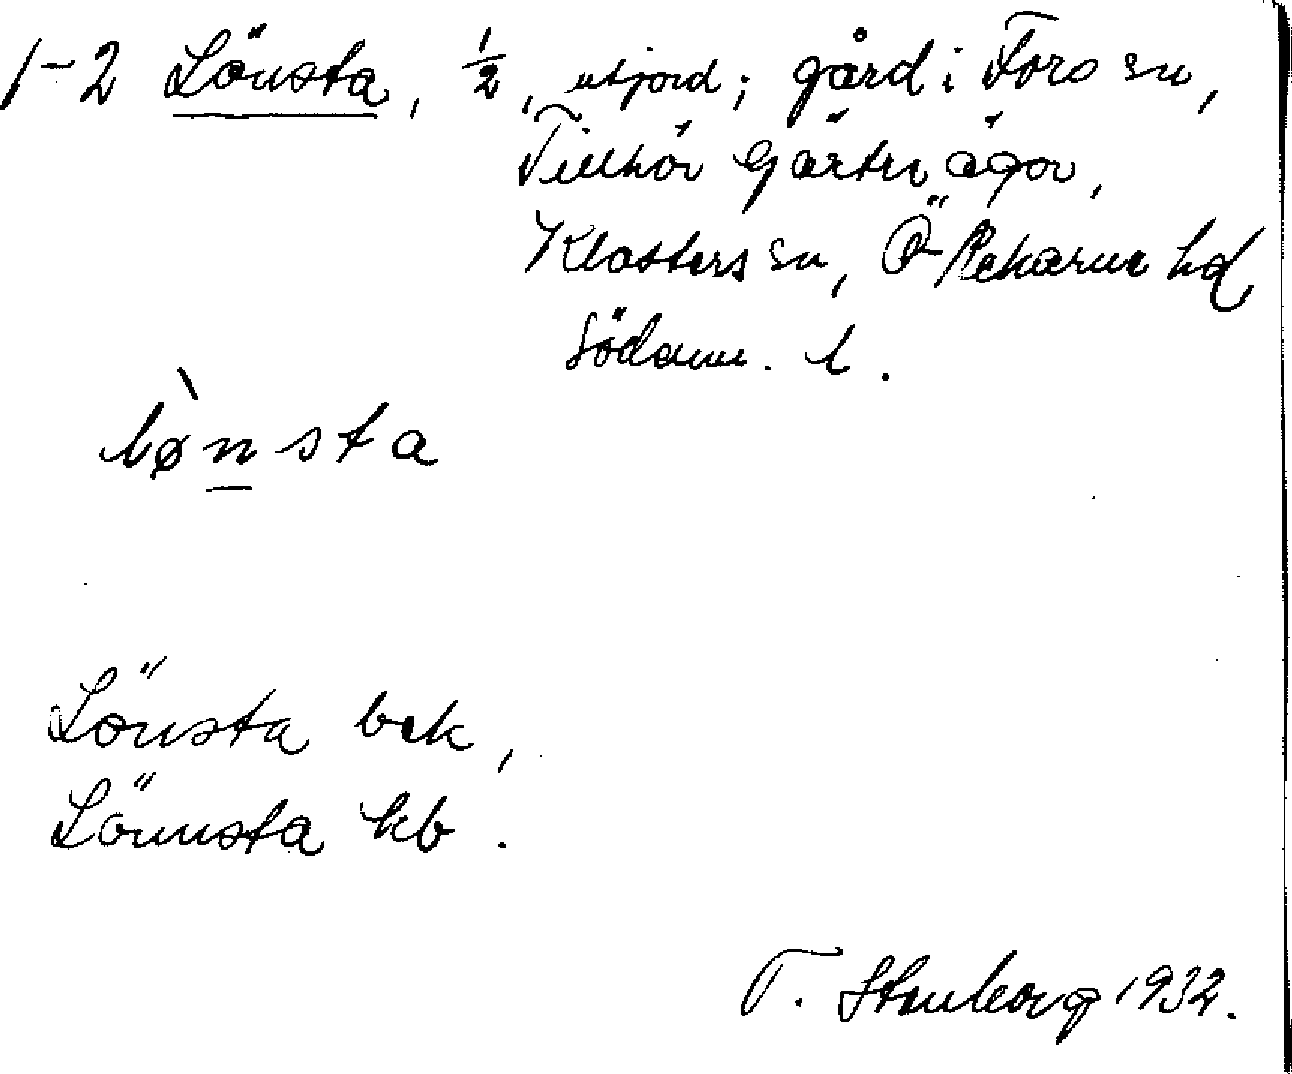 1-2 Lönsta, 1/2, utjord; gård i Fors sn,
Tillhör Gärtre ägor,
Klosters sn, Ö-Rekarne hd
Söderm. l.
lø̀nsta
Lönsta bek,
Lönnsta kb.
T. Stenborg 1932.